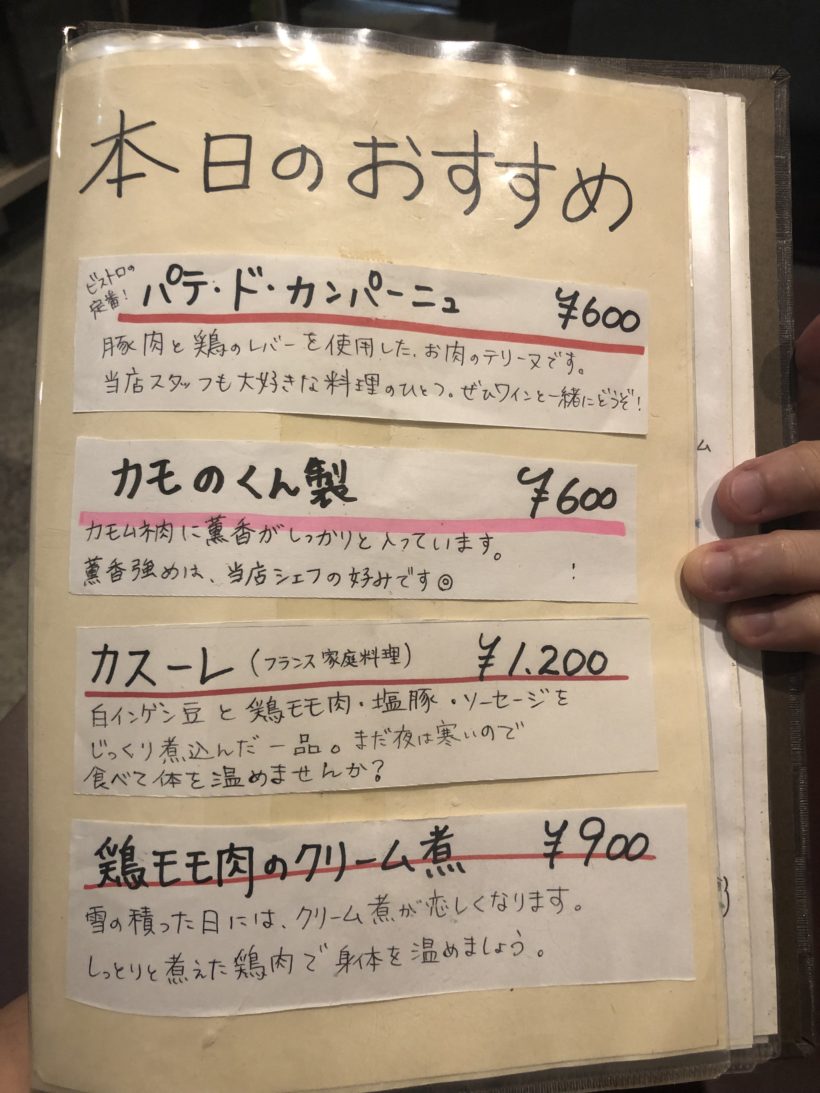 本日のおすすめ
ビストロの
定番!
パテ・ド・カンパーニュ ¥600
豚肉と鶏のレバーを使用した、お肉のテリーヌです。
当店スタッフも大好きな料理のひとつ。ぜひワインと一緒にどうぞ!
カモのくん製 ¥600
カモムネ肉に薫香がしっかりと入っています。
薫香強めは、当店シェフの好みです◎ !
カスーレ(フランス家庭料理) ¥1.200
白インゲン豆と鶏モモ肉・塩豚・ソーセージを
じっくり煮込んだ一品。まだ夜は寒いので
食べて体を温めませんか?
鶏モモ肉のクリーム煮 ¥900
雪の積った日には、クリーム煮が恋しくなります。
しっとりと煮えた鶏肉で身体を温めましょう。
ム